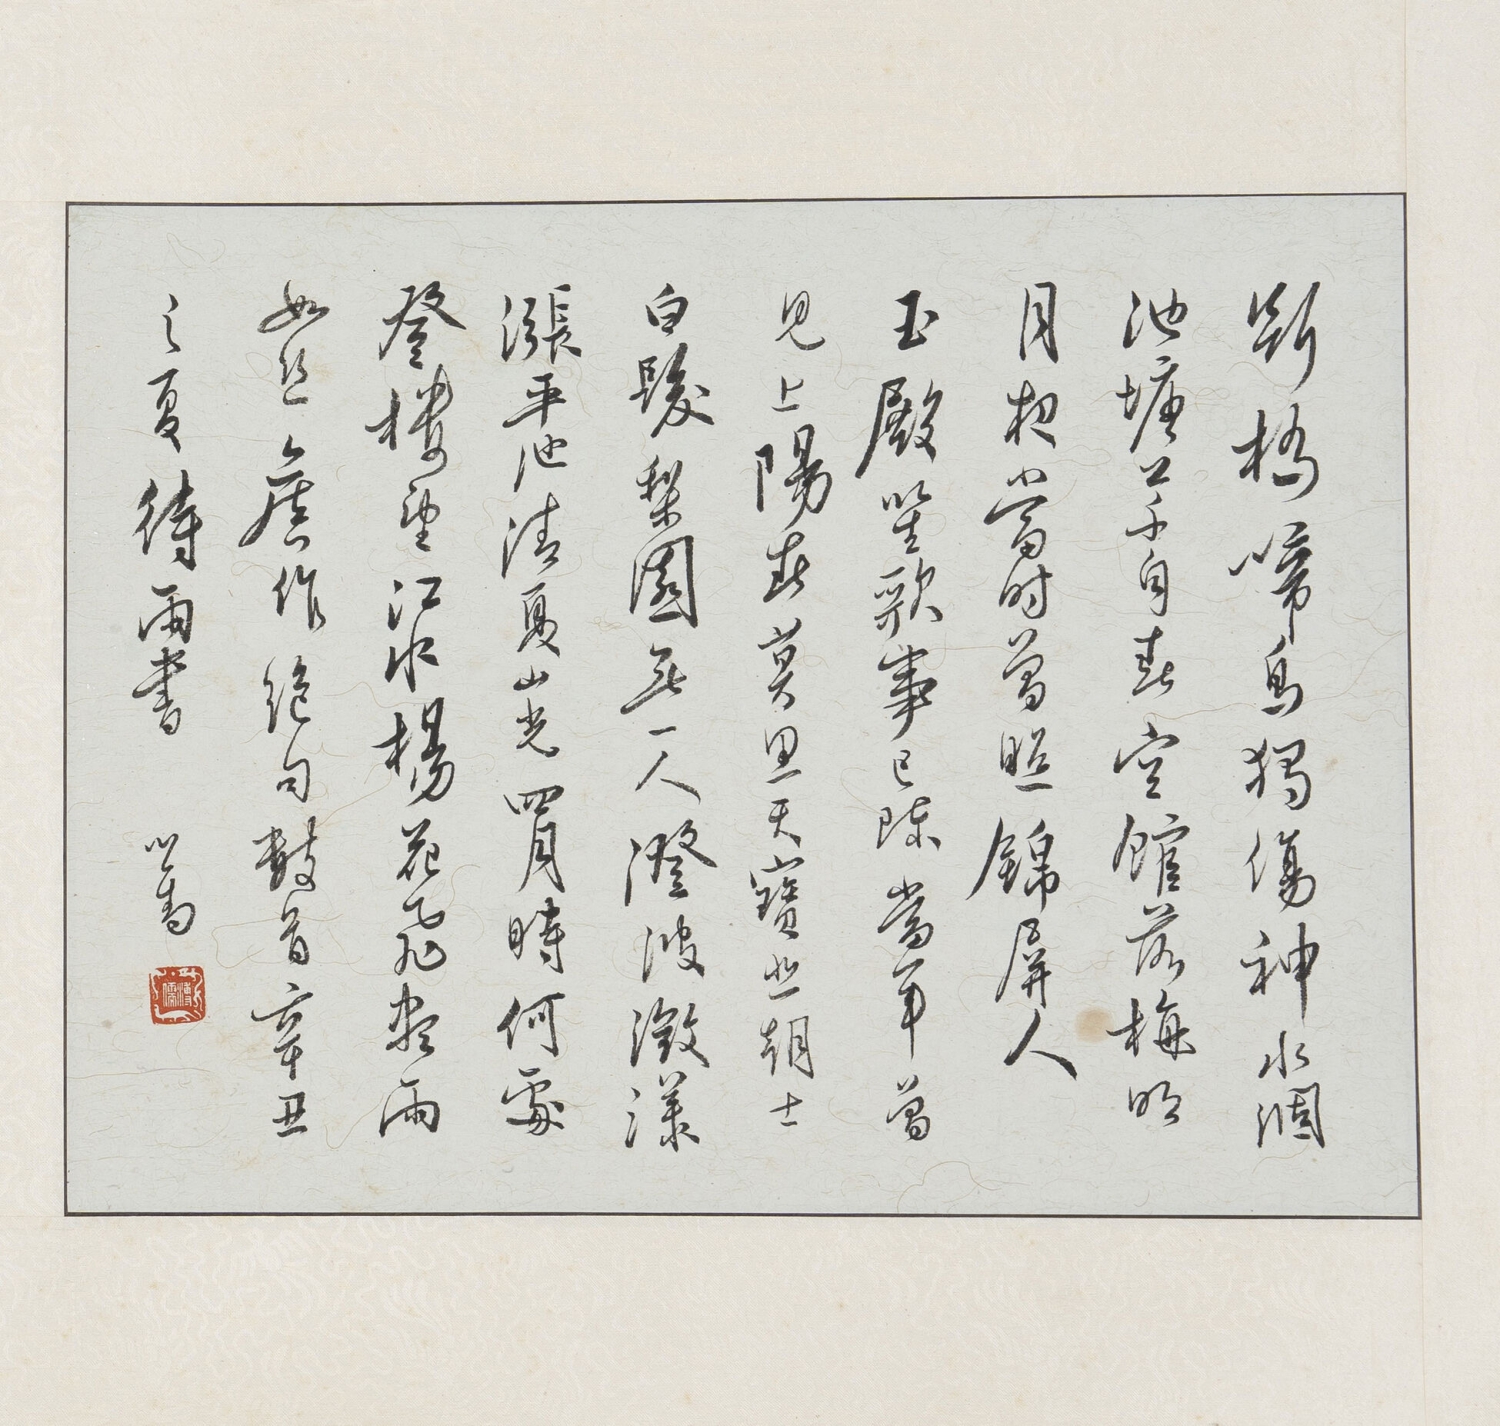 斷橋啼鳥獨傷神水涸
池塘草自春空館落梅明
月夜當時曾照錦屏人
玉殿笙歌事已陳當年曾
見上陽春莫思天寶朝士
白髮梨園無一人澄波激灔
漲平池清夏山光四月時何處
登樓望江水楊花飛盡雨
如絲舊作絕句數首辛丑
之夏待雨書 心畬
溥儒